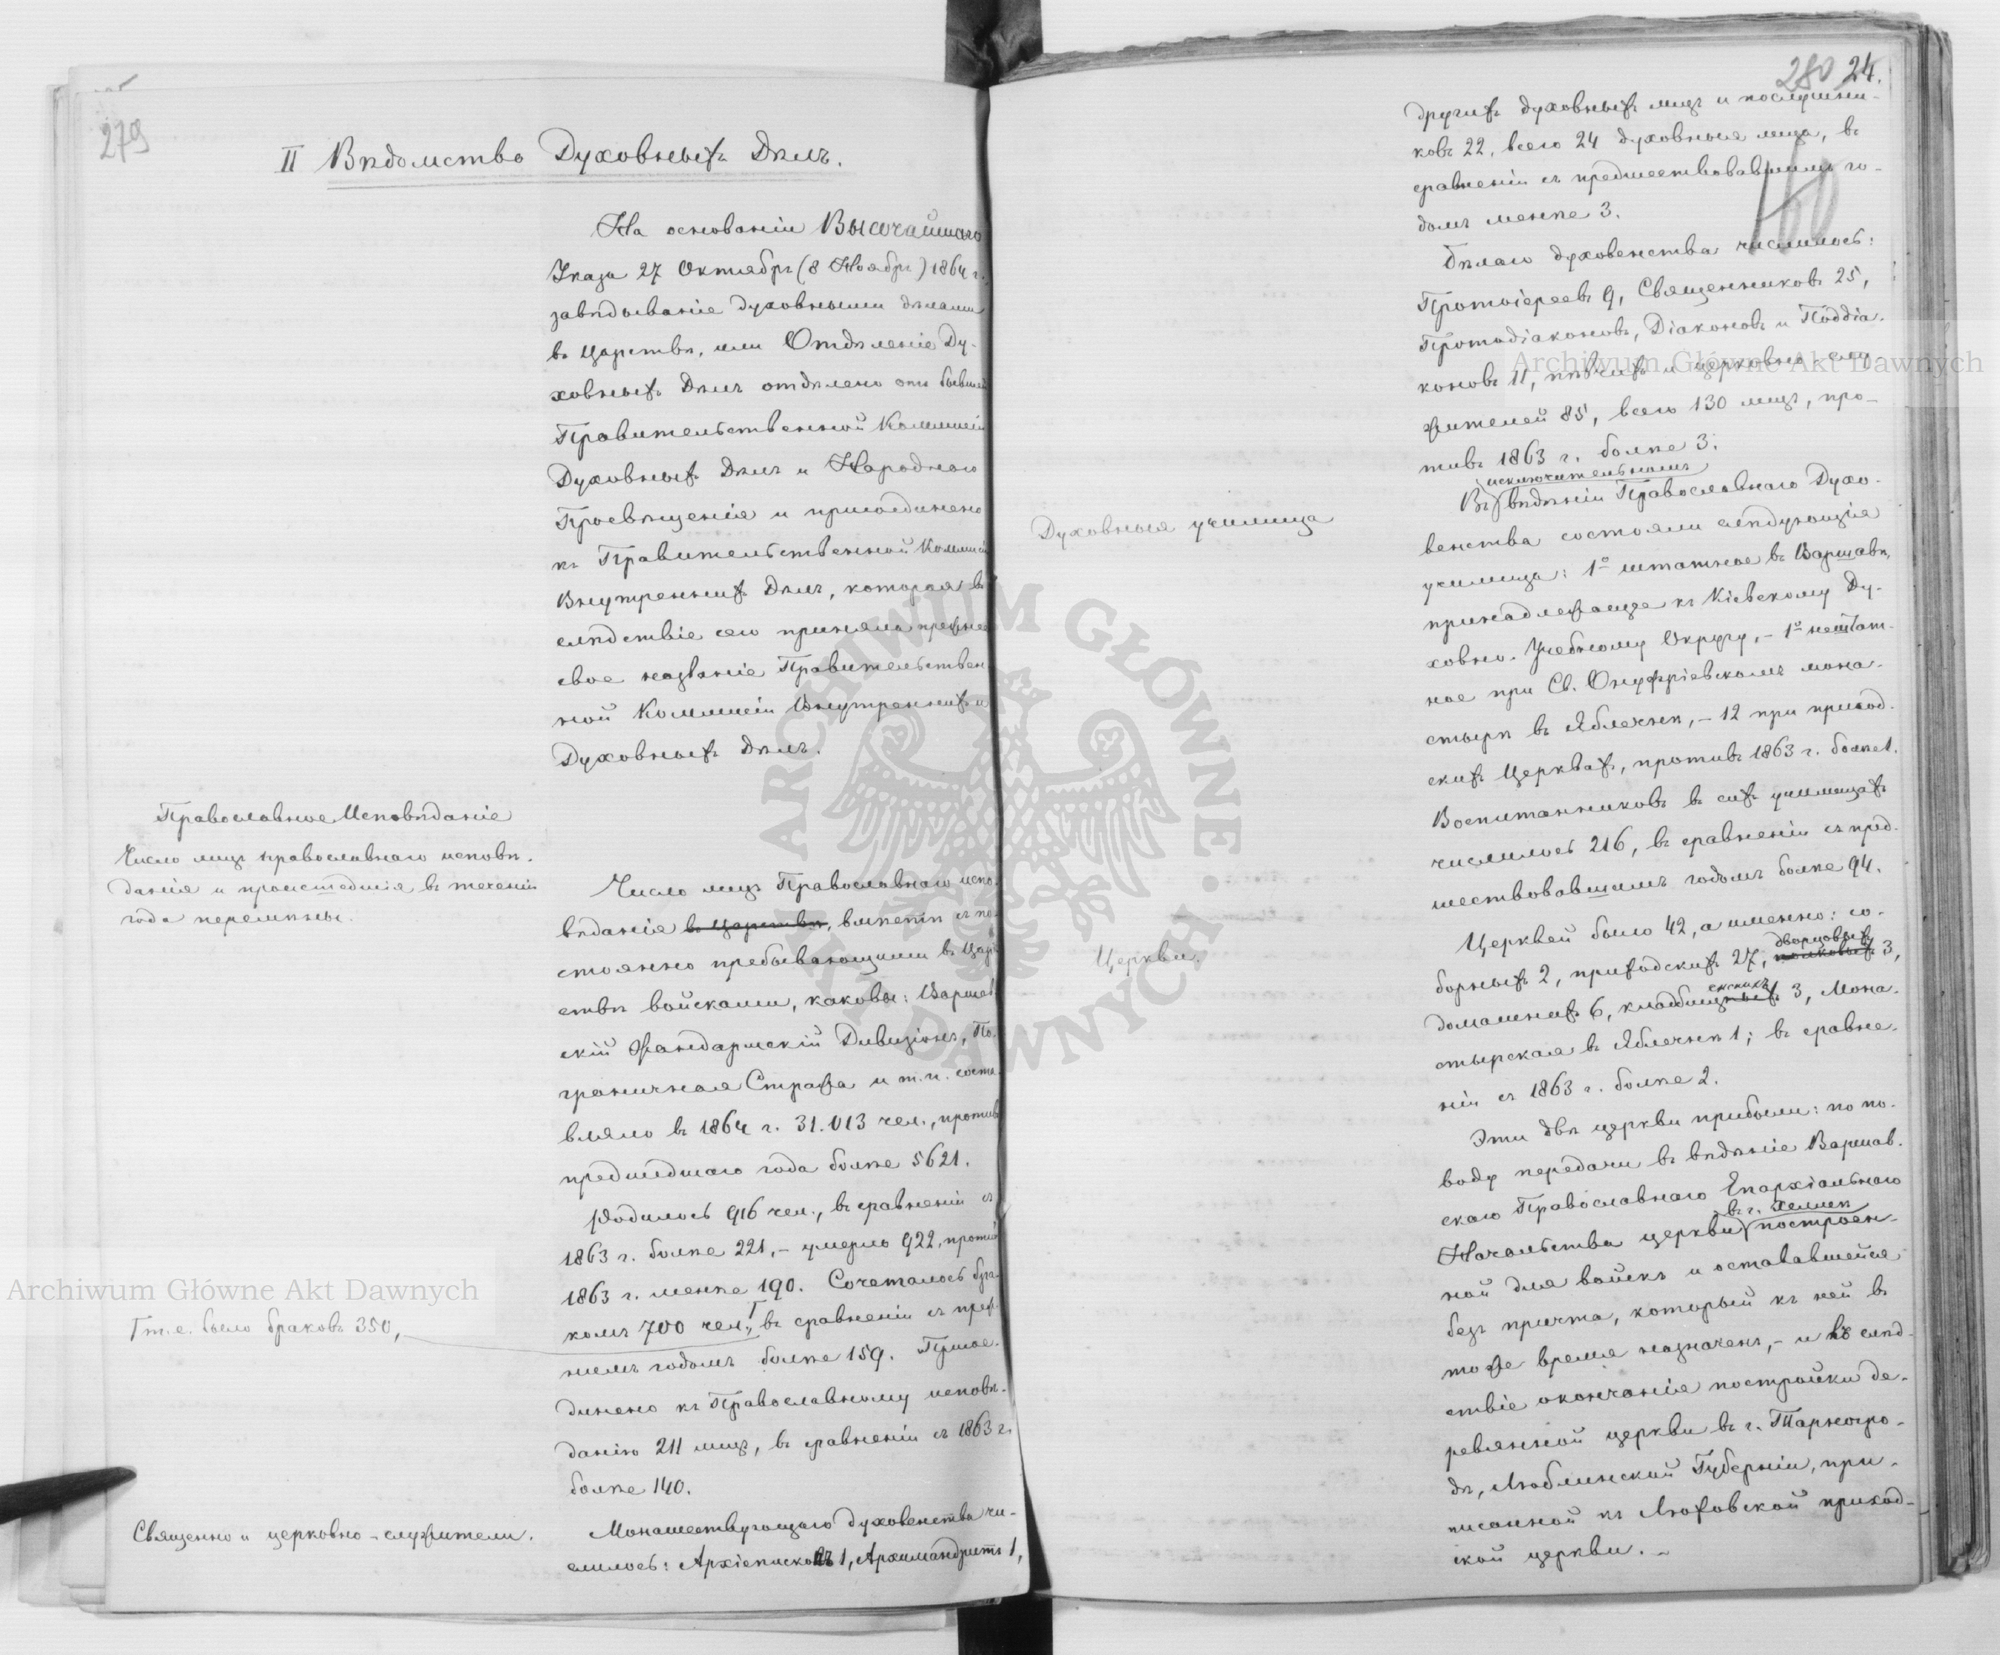 279
II Вѣдомство Духовныхъ Дѣлъ.
На основаніи Высочайшаго
Указа 27 Октября (8 Ноября) 1864 г.
завѣдываніе духовными дѣлами
въ Царствѣ, или Отдѣленіе Ду-
ховныхъ Дѣлъ отдѣлено отъ бывшей
Правительственной Коммисіи
Духовныхъ Дѣлъ и Народнаго
Просвѣщенія и присоединено
къ Правительственной Коммисіи
Внутреннихъ Дѣлъ, которая въ
слѣдствіе сего приняла прежнее
свое названіе Правительствен
ной Коммисіи Внутреннихъ и
Духовныхъ Дѣлъ.
Православное Исповѣданіе
Число лицъ православнаго исповѣ-
данія и происшедшія въ теченіи
года перемѣны.
Число лицъ Православнаго испо-
вѣданія въ Царствѣ, вмѣстѣ съ по-
стоянно пребывающими въ Цар-
ствѣ войсками, каковы: Варшав-
скій Жандармскій Дивизіонъ, По-
граничная Стража и т. п. соста-
вляло въ 1864 г. 31.013 чел., противъ
предшедшаго года болѣе 5621.
Родилось 916 чел., въ сравненіи съ
1863 г. болѣе 221, – умерло 922, противъ
1863 г. менѣе 190. Сочеталось бра-
комъ 700 чел., въ сравненіи съ преж-
нимъ годомъ болѣе 159. Присое-
динено къ Православному исповѣ-
данію 211 лицъ, въ сравненіи съ 1863 г.
болѣе 140.
Г т. е. было браковъ 350,
Священно и церковно-служители.
Монашествующаго духовенства чи-
слилось: Архіепископъ 1, Архимандритъ 1,
280 24.
160
другихъ духовныхъ лицъ и послушни-
ковъ 22, всего 24 духовныя лица, въ
сравненіи съ предшествовавшимъ го-
домъ менѣе 3.
Бѣлаго духовенства числилось:
Протоіереевъ 9, Священниковъ 25,
Протодіаконовъ, Діаконовъ и Поддіа-
коновъ 11, пѣвчихъ и церковно-слу
жителей 85, всего 130 лицъ, про-
тивъ 1863 г. болѣе 3.
исключительномъ
Въ вѣдѣніи Православнаго Духо-
венства состояли слѣдующія
училища: 1° штатное въ Варшавѣ,
принадлежащее къ Кіевскому Ду-
ховно. Учебному Округу, – 1° нештат-
ное при Св. Онуфріевскомъ мона-
стырѣ въ Яблечнѣ, – 12 при приход-
скихъ Церквахъ, противъ 1863 г. болѣе 1.
Воспитанниковъ въ сихъ училищахъ
числилось 216, въ сравненіи съ пред-
шествовавшимъ годомъ болѣе 94.
Духовныя училища
Церкви.
Церквей было 42, а именно: со-
дворцовыхъ
борныхъ 2, приходскихъ 27, полковыхъ 3,
енскихъ
домашнихъ 6, кладбищныхъ 3, Мона-
стырская въ Яблечнѣ 1; въ сравне-
ніи съ 1863 г. болѣе 2.
Эти двѣ церкви прибыли: по по-
воду передачи въ вѣдѣніе Варшав-
скаго Православнаго Епархіальнаго
въ г. Хелмѣ
Начальства церкви построен-
ной для войскъ и остававшейся
безъ причта, который къ ней въ
тоже время назначенъ, – и въ слѣд-
ствіе окончанія постройки де-
ревянной церкви въ г. Тарногро-
дѣ, Люблинской Губерніи, при-
писанной къ Люховской приход-
ской церкви. –
Archiwum Główne Akt Dawnych
Archiwum Główne Akt Dawnych
ARCHIWUM GŁÓWNE · AKT DAWNYCH ·